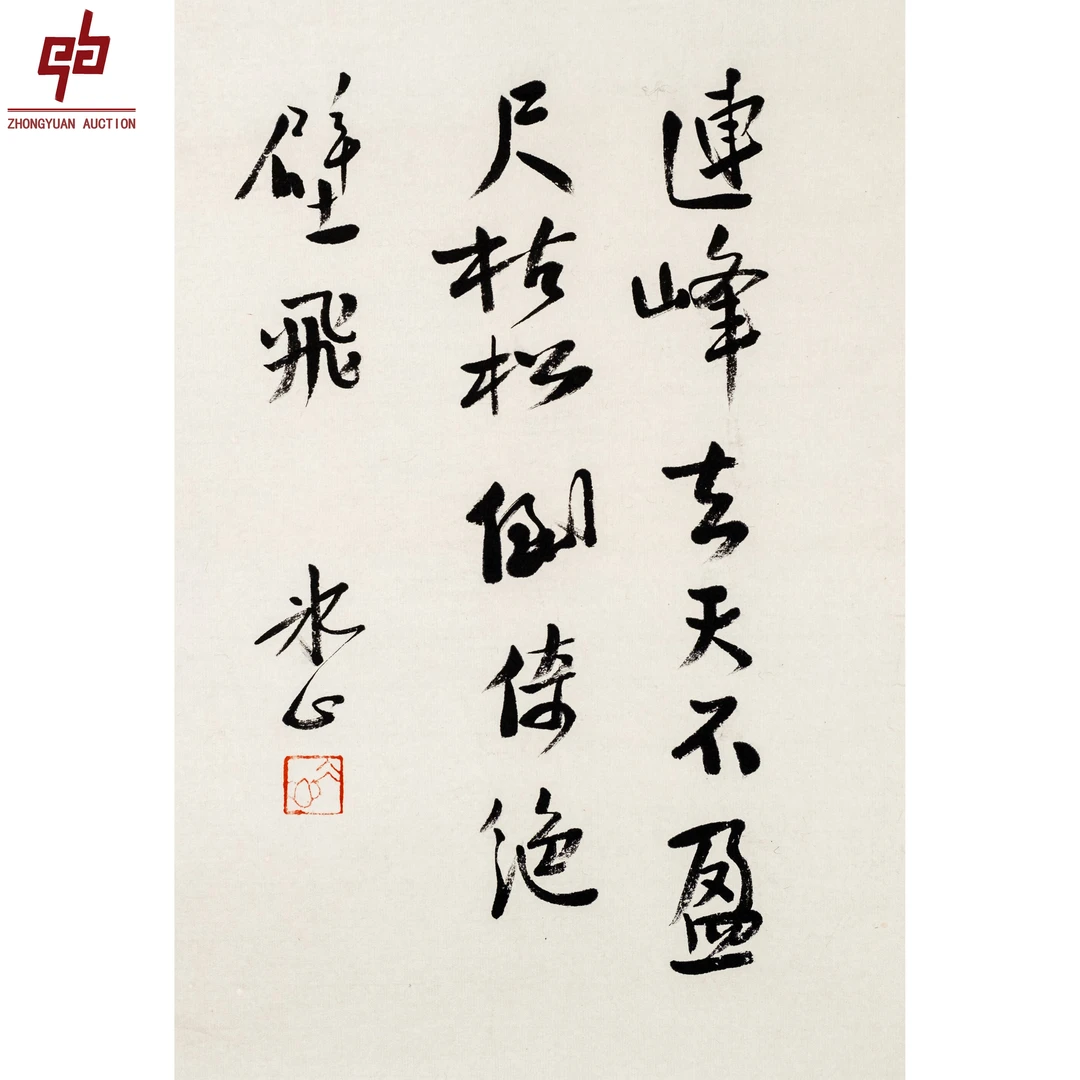 ZHONGYUAN AUCTION
連峰去天不盈
尺枯松倒倚絶
壁飛